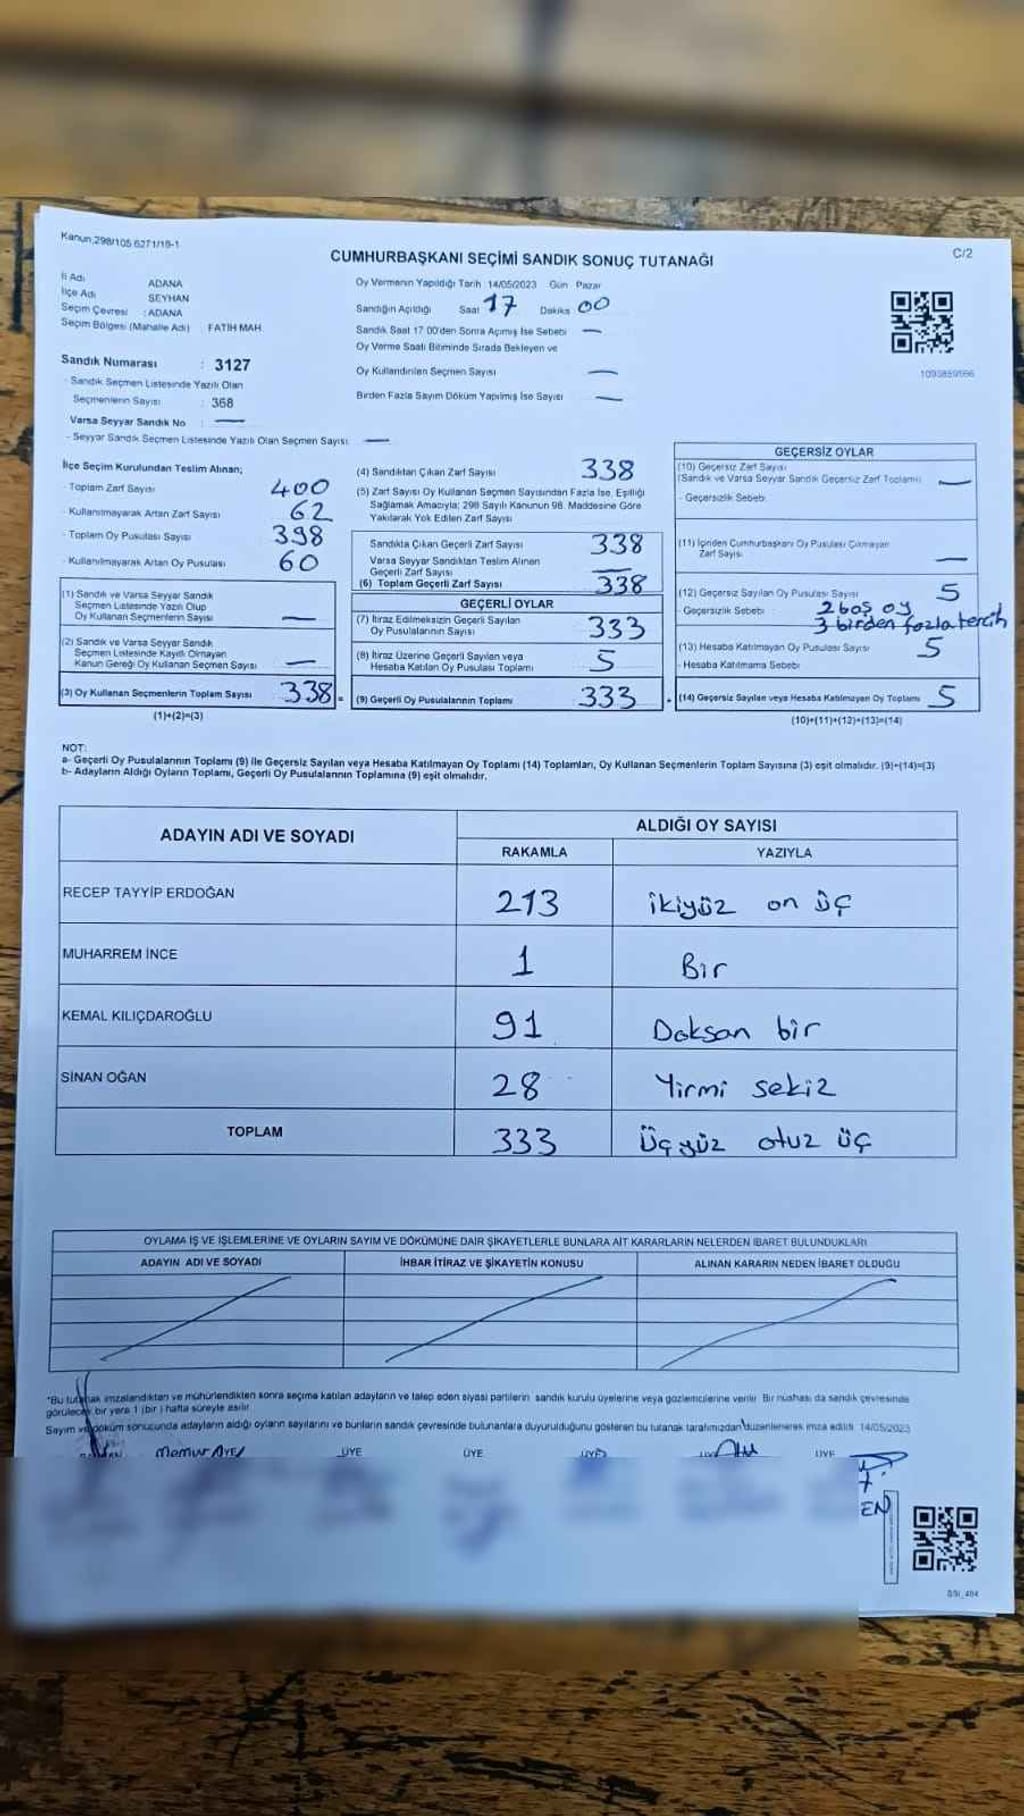 Kanun:298/105 6271/19-1
C/2
CUMHURBAŞKANI SEÇİMİ SANDIK SONUÇ TUTANAĞI
İl Adı ADANA
İlçe Adı SEYHAN
Seçim Çevresi : ADANA
Seçim Bölgesi (Mahalle Adı) : FATİH MAH.
Sandık Numarası : 3127
- Sandık Seçmen Listesinde Yazılı Olan
Seçmenlerin Sayısı : 368
Varsa Seyyar Sandık No : —
- Seyyar Sandık Seçmen Listesinde Yazılı Olan Seçmen Sayısı: —
Oy Vermenin Yapıldığı Tarih 14/05/2023 Gün Pazar
Sandığın Açıldığı Saat 17 Dakika 00
Sandık Saat 17.00'den Sonra Açılmış İse Sebebi —
Oy Verme Saati Bitiminde Sırada Bekleyen ve
Oy Kullandırılan Seçmen Sayısı —
Birden Fazla Sayım Döküm Yapılmış İse Sayısı —
İlçe Seçim Kurulundan Teslim Alınan;
- Toplam Zarf Sayısı 400
- Kullanılmayarak Artan Zarf Sayısı 62
- Toplam Oy Pusulası Sayısı 398
- Kullanılmayarak Artan Oy Pusulası 60
(1) Sandık ve Varsa Seyyar Sandık
Seçmen Listesinde Yazılı Olup
Oy Kullanan Seçmenlerin Sayısı —
(2) Sandık ve Varsa Seyyar Sandık
Seçmen Listesinde Kaydı Olmayan
Kanun Gereği Oy Kullanan Seçmen Sayısı —
(3) Oy Kullanan Seçmenlerin Toplam Sayısı 338 =
(1)+(2)=(3)
(4) Sandıktan Çıkan Zarf Sayısı 338
(5) Zarf Sayısı Oy Kullanan Seçmen Sayısından Fazla İse, Eşitliği
Sağlamak Amacıyla; 298 Sayılı Kanunun 98. Maddesine Göre
Yakılarak Yok Edilen Zarf Sayısı
Sandıkta Çıkan Geçerli Zarf Sayısı 338
Varsa Seyyar Sandıktan Teslim Alınan
Geçerli Zarf Sayısı —
(6) Toplam Geçerli Zarf Sayısı 338
GEÇERLİ OYLAR
(7) İtiraz Edilmeksizin Geçerli Sayılan
Oy Pusulalarının Sayısı 333
(8) İtiraz Üzerine Geçerli Sayılan veya
Hesaba Katılan Oy Pusulası Toplamı 5
(9) Geçerli Oy Pusulalarının Toplamı 333
GEÇERSİZ OYLAR
(10) Geçersiz Zarf Sayısı
(Sandık ve Varsa Seyyar Sandık Geçersiz Zarf Toplamı) —
- Geçersizlik Sebebi
(11) İçinden Cumhurbaşkanı Oy Pusulası Çıkmayan
Zarf Sayısı —
(12) Geçersiz Sayılan Oy Pusulası Sayısı 5
- Geçersizlik Sebebi : 2 boş oy
3 birden fazla tercih
(13) Hesaba Katılmayan Oy Pusulası Sayısı 5
- Hesaba Katılmama Sebebi
(14) Geçersiz Sayılan veya Hesaba Katılmayan Oy Toplamı 5
(10)+(11)+(12)+(13)=(14)
NOT:
a- Geçerli Oy Pusulalarının Toplamı (9) ile Geçersiz Sayılan veya Hesaba Katılmayan Oy Toplamı (14) Toplamları, Oy Kullanan Seçmenlerin Toplam Sayısına (3) eşit olmalıdır. (9)+(14)=(3)
b- Adayların Aldığı Oyların Toplamı, Geçerli Oy Pusulalarının Toplamına (9) eşit olmalıdır.
ADAYIN ADI VE SOYADI ALDIĞI OY SAYISI
RAKAMLA YAZIYLA
RECEP TAYYİP ERDOĞAN 213 ikiyüz on üç
MUHARREM İNCE 1 Bir
KEMAL KILIÇDAROĞLU 91 Doksan bir
SİNAN OĞAN 28 Yirmi sekiz
TOPLAM 333 Üçyüz otuz üç
OYLAMA İŞ VE İŞLEMLERİNE VE OYLARIN SAYIM VE DÖKÜMÜNE DAİR ŞİKAYETLERLE BUNLARA AİT KARARLARIN NELERDEN İBARET BULUNDUKLARI
ADAYIN ADI VE SOYADI İHBAR İTİRAZ VE ŞİKAYETİN KONUSU ALINAN KARARIN NEDEN İBARET OLDUĞU
*Bu tutanak imzalandıktan ve mühürlendikten sonra seçime katılan adayların ve talep eden siyasi partilerin sandık kurulu üyelerine veya gözlemcilerine verilir. Bir nüshası da sandık çevresinde
görülecek bir yere 1 (bir) hafta süreyle asılır.
Sayım ve döküm sonucunda adayların aldığı oyların sayılarını ve bunların sandık çevresinde bulunanlara duyurulduğunu gösteren bu tutanak tarafımızdan düzenlenerek imza edildi. 14/05/2023
Memur ÜYE ÜYE ÜYE ÜYE ÜYE
EN